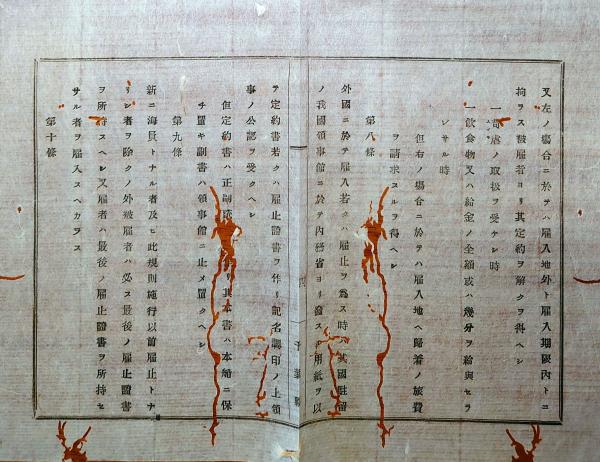 又左ノ場合ニ於テハ雇入地外ト雇入期限內トニ
拘ラス被雇者ヨリ其定約ヲ解クヲ得ヘシ
一苛虐ノ取扱ヲ受ケシ時
一飮食物又ハ給金ノ全額或ハ幾分ヲ給與セラ
レサル時
但右ノ場合ニ於テハ雇入地ヘ歸着ノ旅費
ヲ請求スルヲ得ヘシ
第八條
外國ニ於テ雇入若クハ雇止ヲ爲ス時ハ其國駐留
ノ我國領事館ニ於テ內務省ヨリ渡ス用紙ヲ以
テ定約書若クハ雇止證書ヲ作リ記名調印ノ上領
事ノ公認ヲ受クヘシ
但定約書ハ正副 其本書ハ本船ニ保
チ置キ副書ハ領事館ニ止メ置クヘシ
第九條
新ニ海員トナル者及ヒ此規則施行以前雇止トナ
リシ者ヲ除クノ外被雇者ハ必ス最後ノ雇止證書
ヲ所持スヘシ又雇者ハ最後ノ雇止證書ヲ所持セ
サル者ヲ雇入スヘカラス
第十條
千葉縣